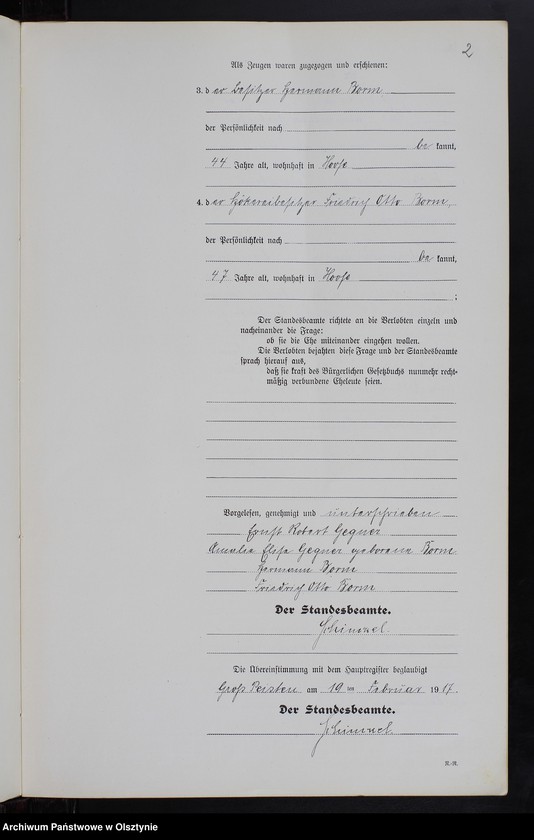 2
Als Zeugen waren zugezogen und erschienen:
3. der Besitzer Hermann Borm
der Persönlichkeit nach
be kannt,
44 Jahre alt, wohnhaft in
4. der Hökereibesitzer Friedrich Otto Borm,
der Persönlichkeit nach
be kannt,
47 Jahre alt, wohnhaft in
;
Der Standesbeamte richtete an die Verlobten einzeln und
nacheinander die Frage:
ob sie die Ehe miteinander eingehen wollen.
Die Verlobten bejahten diese Frage und der Standesbeamte
sprach hierauf aus,
daß sie kraft des Bürgerlichen Gesetzbuchs nunmehr recht-
mäßig verbundene Eheleute seien.
Vorgelesen, genehmigt und unterschrieben
Ernst Robert Gegner
Amalie Elise Gegner geborene Borm
Hermann Borm
Friedrich Otto Borm
Der Standesbeamte.
Schimmel.
Die Übereinstimmung mit dem Hauptregister beglaubigt
Groß Peisten am 19 ten Februar 1917.
Der Standesbeamte.
Schimmel.
Archiwum Państwowe w Olsztynie